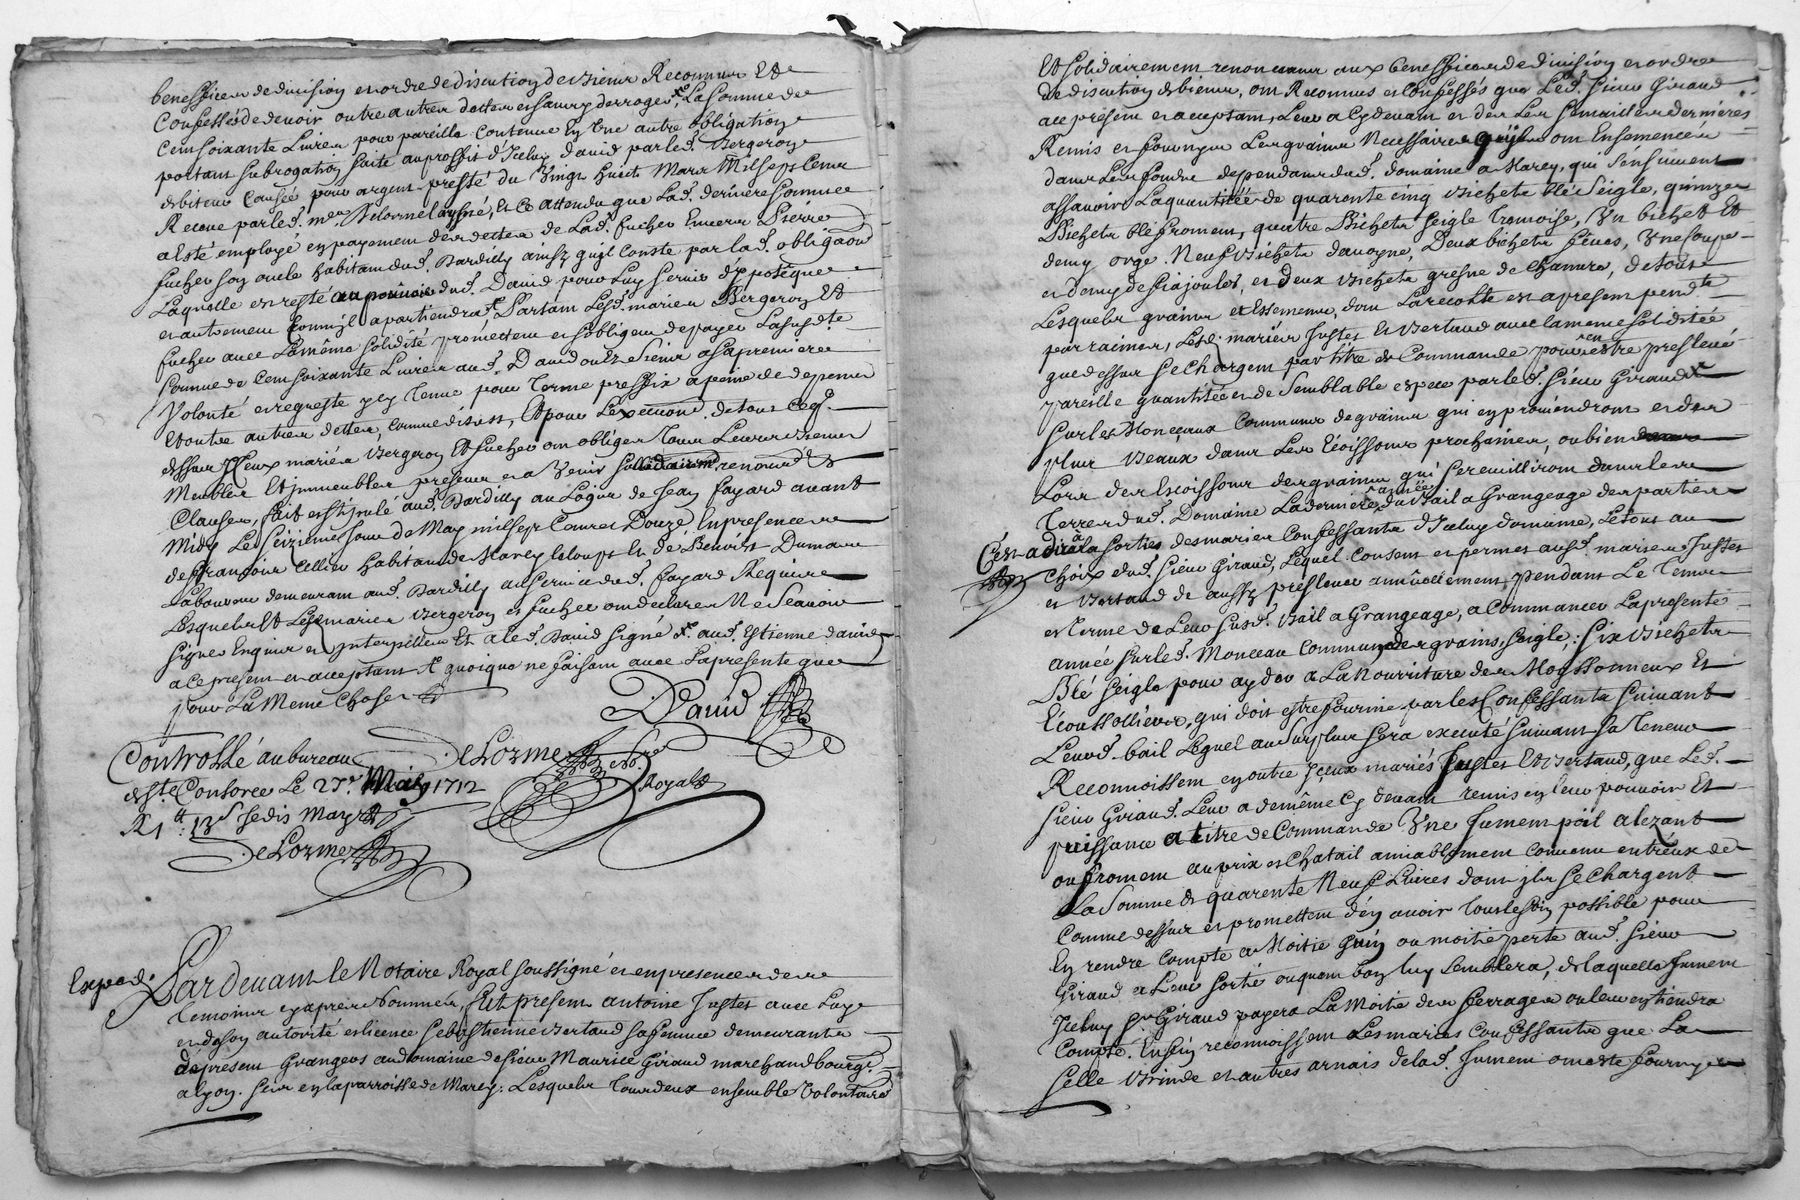 beneffices de division et ordre de discution de biens Reconnus Et
Confessés de devoir outre autres dettes et sans y derroger La somme de
Cent soixante Livres pour pareille contenue En Une autre obligation
portant subrogation faite au proffit d'Iceluy david par led. Vergeron
debiteur Causée pour argent presté du Vingt huict Mars Mil sept Cent
Receue par led. me Delorme, Et Ce attendu que Lad. derniere somme
a Esté employé en payement des dettes de Lad. fucher Envers Pierre
fucher son oncle habitant dud. Dardilly ainsy qu'il Conste par lad. obligaon
Laquelle en reste au pouvoir dud. David pour Luy servir d'ÿpotèque
et autrement Comm'il apartiendra Partant Lesd. mariés Bergeron Et
fucher avec La même solidité promettent et s'obligent de payer La susd.te
somme de Cent soixante Livres aud. David ou Es siens a sa premiere
Volonté et requeste y ci Tenue pour Terme preffix a peine de depens
Et outre autres dettes, comme dit est, Et pour Lexecuon. de tout Ceq.
dessus Iceux mariés Vergeron Et fucher ont obligés Tous Leurs biens
Meubles Et jmmeubles presens et a Venir sollidairemt. renoncé Et
Clauses, fait et stipulé aud. Dardilly au Logis de Jean fayard avant
Midy Le seizieme Jour de May mil sept Cent Et Douze En presence
de françois Cellier habitant de Marcy le loup Et de Benoist Dumas
Laboureur demeurant aud. Dardilly au service dud. fayard Requis
Lesquels Et Les mariés Vergeron et fucher ont declaré Ne Scavoir
signer Enquis et Interpellés Et a led. David signé aud. Estienne david
a ce present et acceptant quoique ne faisant avec La presente que
pour La Meme Chose
David
Controllé au bureau
de St. Consorce Le 27e May 1712
R 1tt: 13s
DeLorme
DeLorme
Royal
Exped.
Pardevant le Notaire Royal soussigné et en presence des
Temoins cy apres Nommés, fut present antoine Justet avec Luy
et de son autorité et licence Sebastienne Bertaud sa femme demeurants
de present Grangers au domaine de sieur Maurice Giraud marchand bourgs.
a Lyon. scis en la parroisse de Marcy: Lesquels Tous deux ensemble Volontaires
Et solidairement renonceants aux beneffices de division et ordre
de discution de biens, ont Reconnus et Confessés que Led. sieur Giraud
a ce present et acceptant, Leur a Cy devant et des Les semailles dernières
Remis et fourny Les grains Necessaires qu'ils ont Ensemencés
dans Les fonds dependants dud. domaine a Marcy, qui s'ensuivent
assavoir La quantitée de quarante cinq Bichets blé seigle, quinze
Bichets blé froment, quatre Bichets seigle Tramoise, Vn bichet Et
demy orge. Neuf Bichets d'avoyne, Deux bichets féves, Vne Coupe
et demy de fiajoules, et deux Bichets gresne de Chanvre, de tous
Lesquels grains et Essements, dont La recolte en a present pend.te
par racines, Lesd. mariés Justet Et Bertaud avec la meme solidité
que dessus se Chargent par titre de Commande pour en estre preslevé
pareille quantitée de semblable espece par led. sieur Giraud
sur les Monceaux Communs de grains qui en proviendront et des
plus Beaux dans Les Ecoissons prochaines, ou bien
Lors des Excoissons des grains qui se recuilliront dans les
Terres dud. Domaine La derniere année du Bail a Grangeage des parties
C'est a dire a la sorties des mariés Confessants d'Iceluy domaine, Le tout au
Choix dud. sieur Giraud, Lequel Consent et permet ausd. mariés Justet
et Bertaud de aussy preslever annüellement pendant Le Tems
et Terme de Leur susd. Bail a Grangeage, a Commancer La presente
année sur led. Monceau Commun des grains seigle; six Bichets
Blé seigle pour ayder a La Nourriture des Moyssonneux Et
Ecoussolliers, qui doit estre fournie par les Confessants suivant
Leurd. bail Lequel au surplus sera executé suivant sa Teneur
Reconnoissent en outre jceux mariés Justet Et Bertaud, que Led.
sieur Giraud Leur a de même Cy devant remis en leur pouvoir Et
puissance a titre de Commande Vne Jument poil alezant
ou froment au prix et Chatail amiablement Convenu entr'eux de
La somme de quarente Neuf Livres dont jls se Chargent
Comme dessus et promettent d'en avoir Tous le soin possible pour
En rendre Compte a Moitie guin ou moitie perte aud. sieur
Giraud a Leur sortie ou quant bon luy semblera, de laquelle Jument
Iceluy Sr. Giraud payera La Moitie des ferrages ou leur en tiendra
Compte. Enfin reconnoissent Les mariés Confessants que La
selle Brinde et autres arnais de lad. Jument ont esté fournye